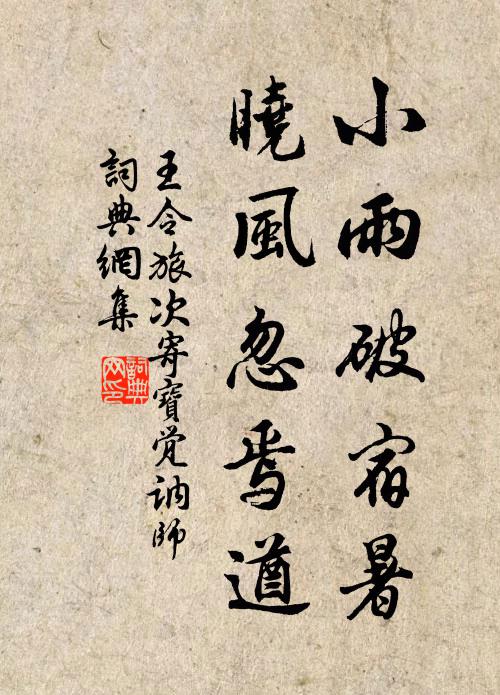 小雨破宿暑
曉風忽焉遒
王令旅次寄寶觉訥師
詞典網集
詞典
网印